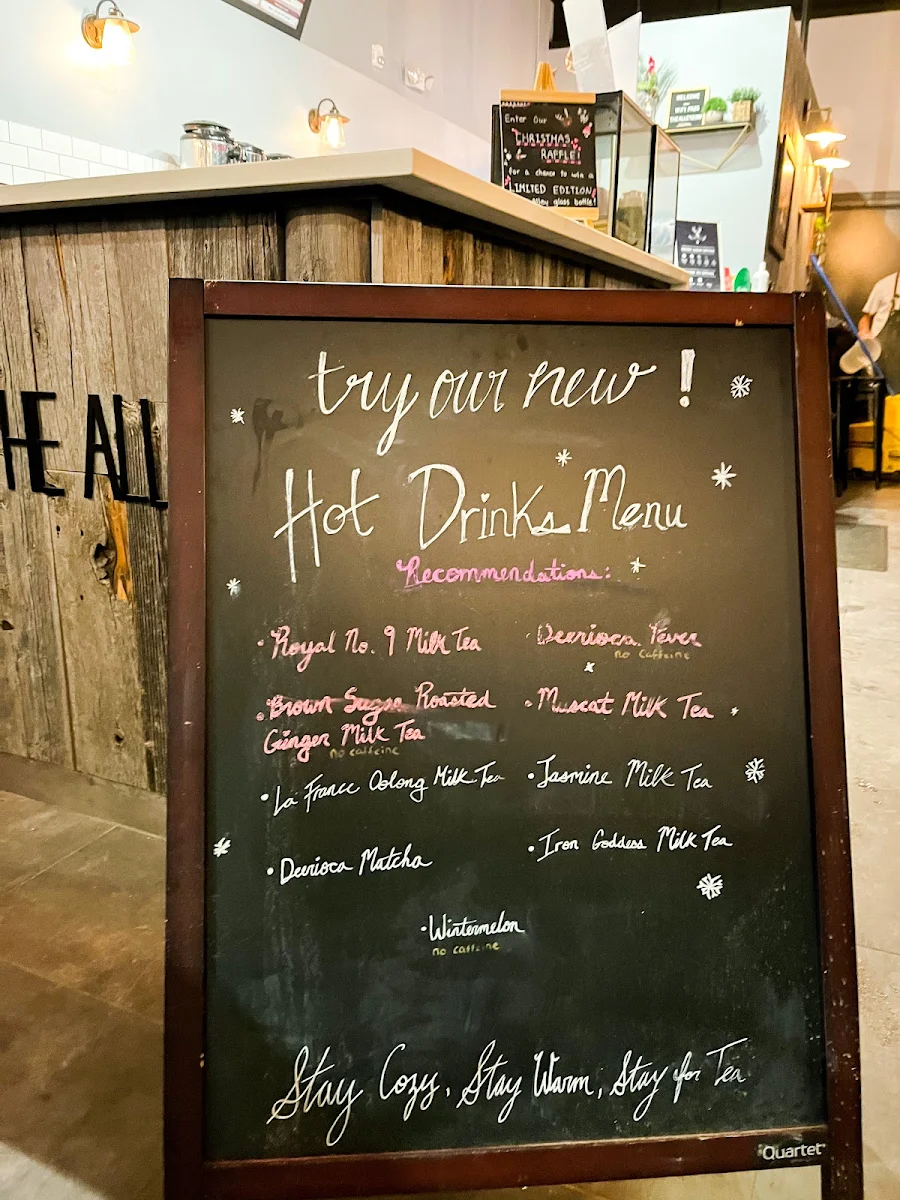 Enter Our
CHRISTMAS
RAFFLE!
for a chance to win a
LIMITED EDITION
Alley glass bottle!
WELCOME
THE ALL
try our new !
Hot Drinks Menu
Recommendations:
• Royal No. 9 Milk Tea
• Deerioca Fever
no caffeine
• Brown Sugar Roasted
Ginger Milk Tea
no caffeine
• Muscat Milk Tea
• La France Oolong Milk Tea
• Jasmine Milk Tea
• Deerioca Matcha
• Iron Goddess Milk Tea
• Wintermelon
no caffeine
Stay Cozy, Stay Warm, Stay for Tea
Quartet